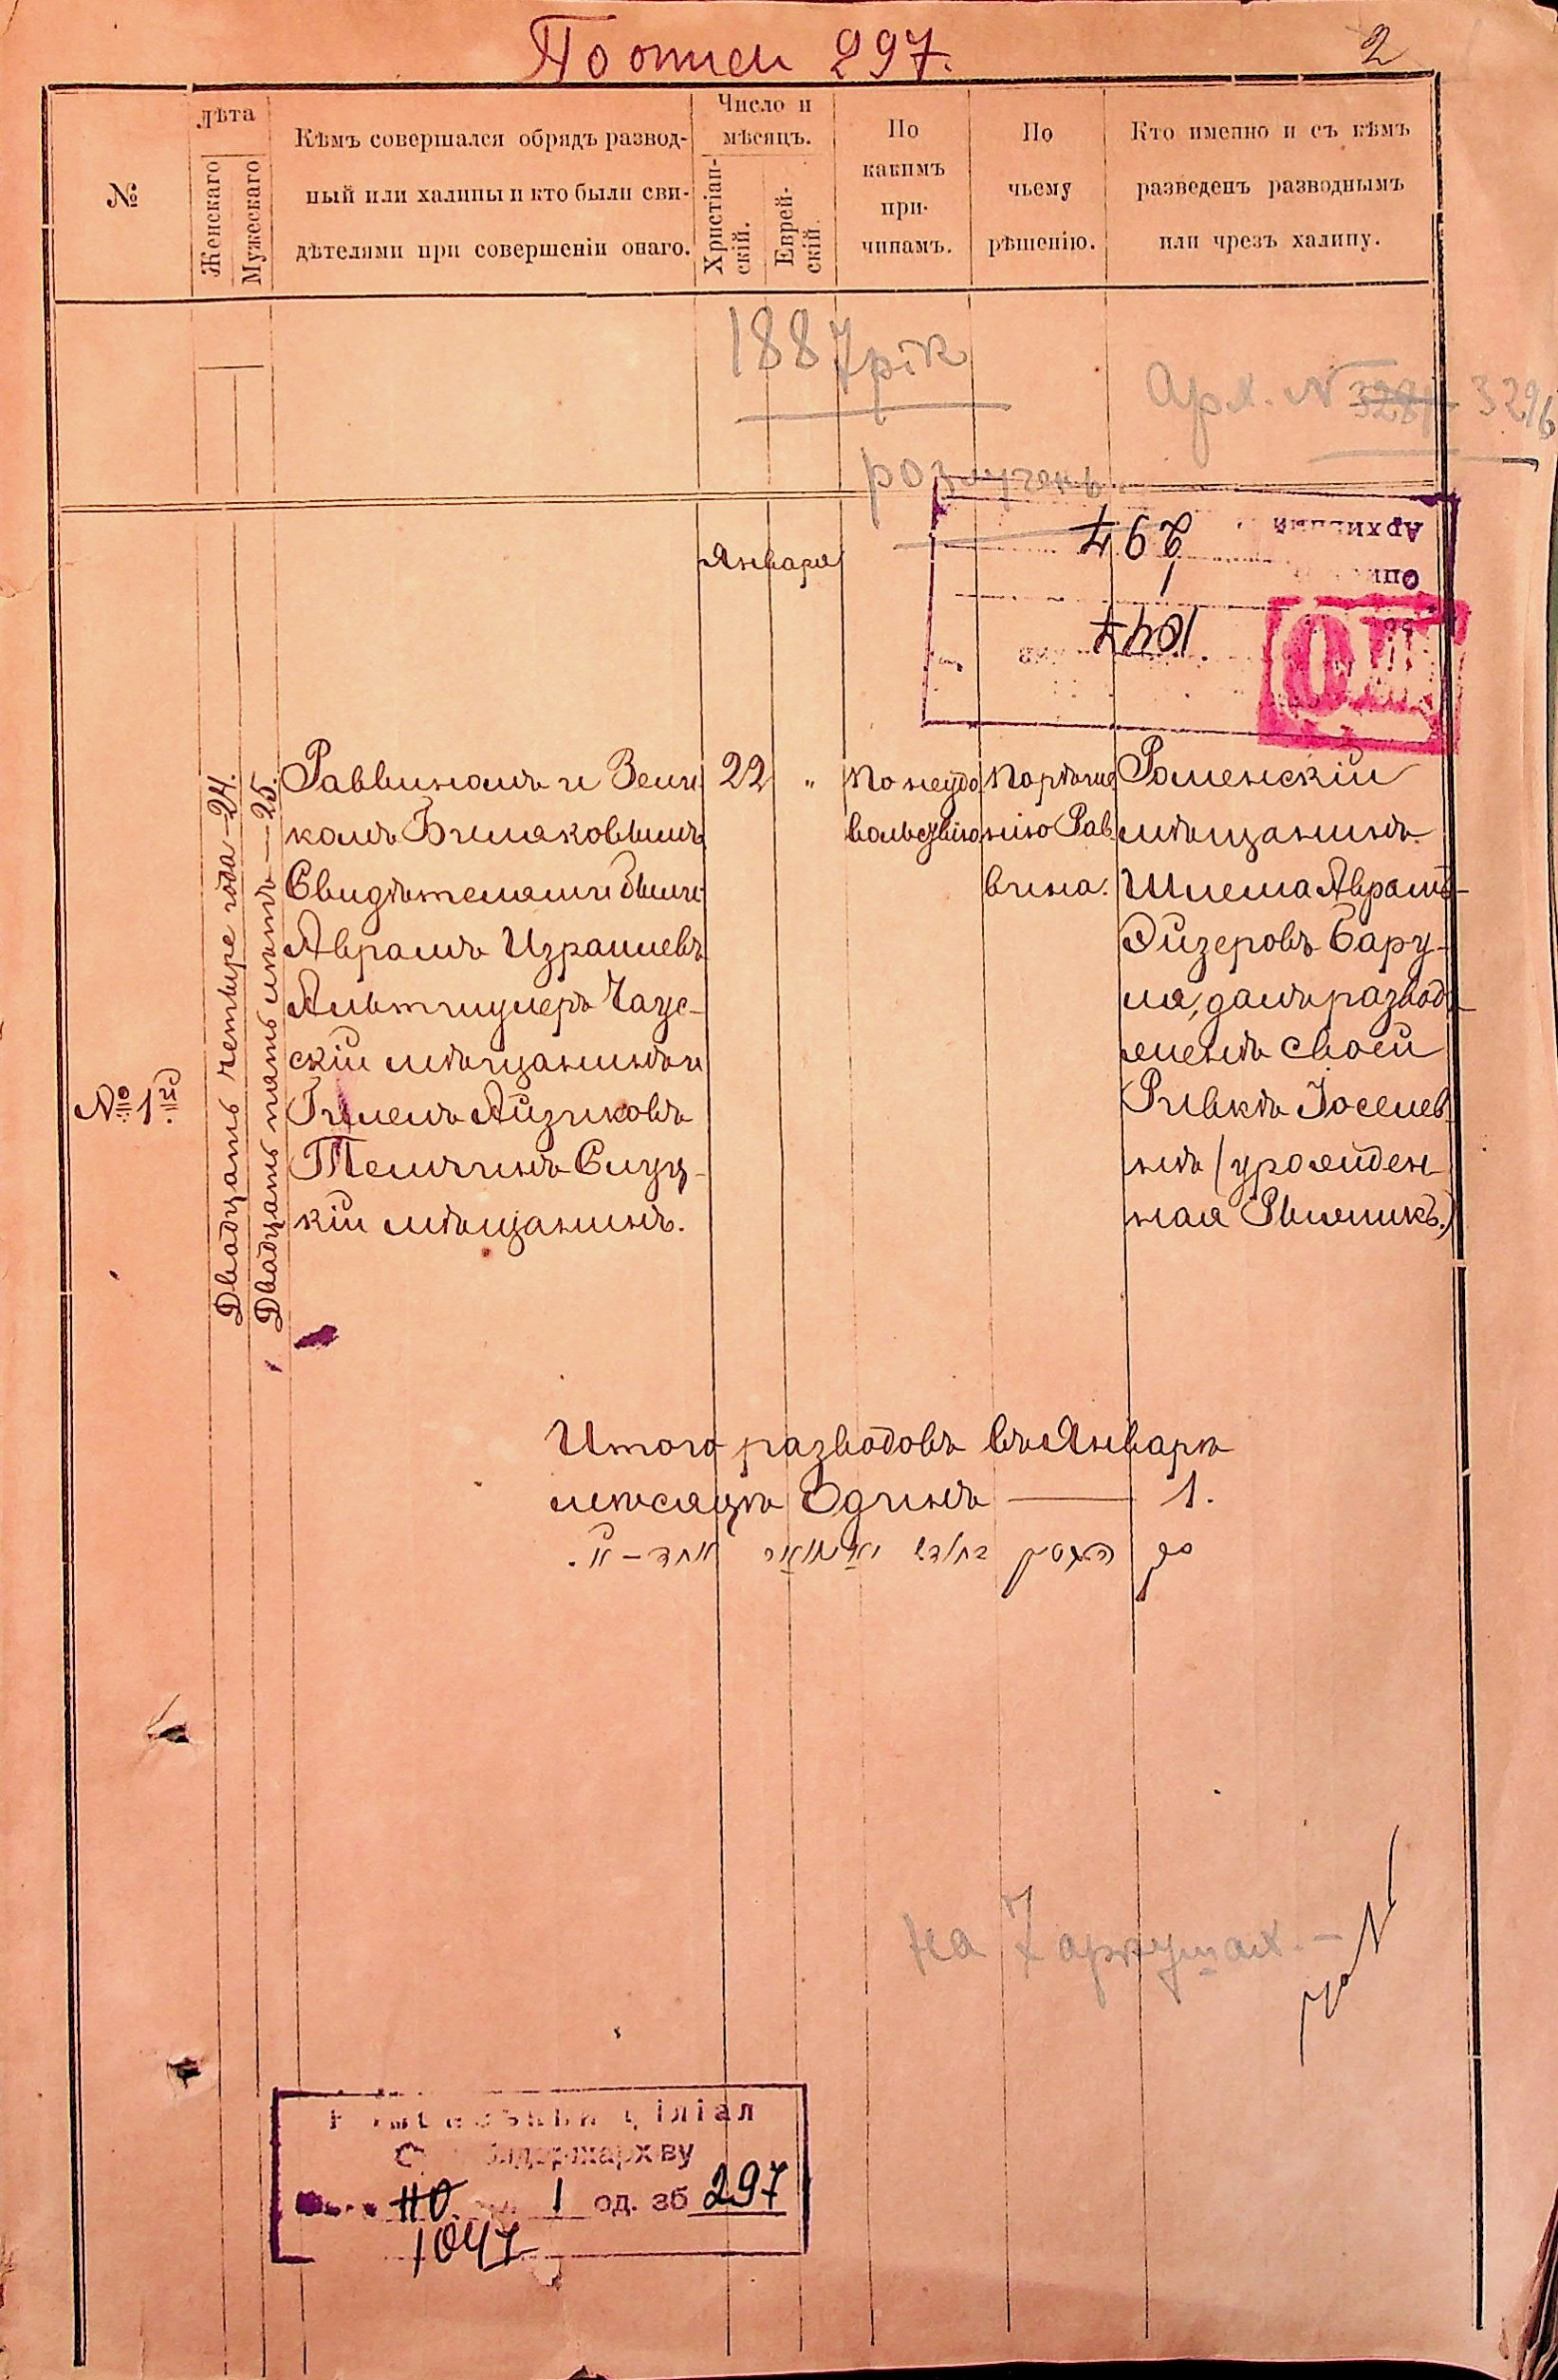 По описи 297.
2
№
Лѣта
Женскаго
Мужескаго
Кѣмъ совершался обрядъ развод-
ный или халицы и кто были сви-
дѣтелями при совершеніи онаго.
Число и
мѣсяцъ.
Христіан-
скій.
Еврей-
скій.
По
какимъ
при-
чинамъ.
По
чьему
рѣшенію.
Кто именно и съ кѣмъ
разведенъ разводнымъ
или чрезъ халицу.
1887 рік
Арх. № 3296
розлучень
Архивный
297
1
1047
Января
№ 1й
Двадцать четыре года - 24.
Двадцать пять лѣтъ - 25.
Раввиномъ и Зели-
комъ
Свидѣтелями были
Аврамъ Израилевъ
Альтшулеръ Чаус-
скій мѣщанинъ и
Гилелъ Айзиковъ
Теличинъ Слуц-
кій мѣщанинъ.
22 "
По неудо-
вольствію
По рѣше-
нію Рав-
вина.
Роменскій
мѣщанинъ
Шлема Аврамъ-
Эйзеровъ Бару-
ля, далъ разводъ
женѣ своей
Ривкѣ Іоселев-
нѣ (урожден-
ная
Итого разводовъ въ Январѣ
мѣсяцѣ Одинъ — 1.
на 7 аркушах. -
філіал
держархіву
110 1 од. зб 297
1047